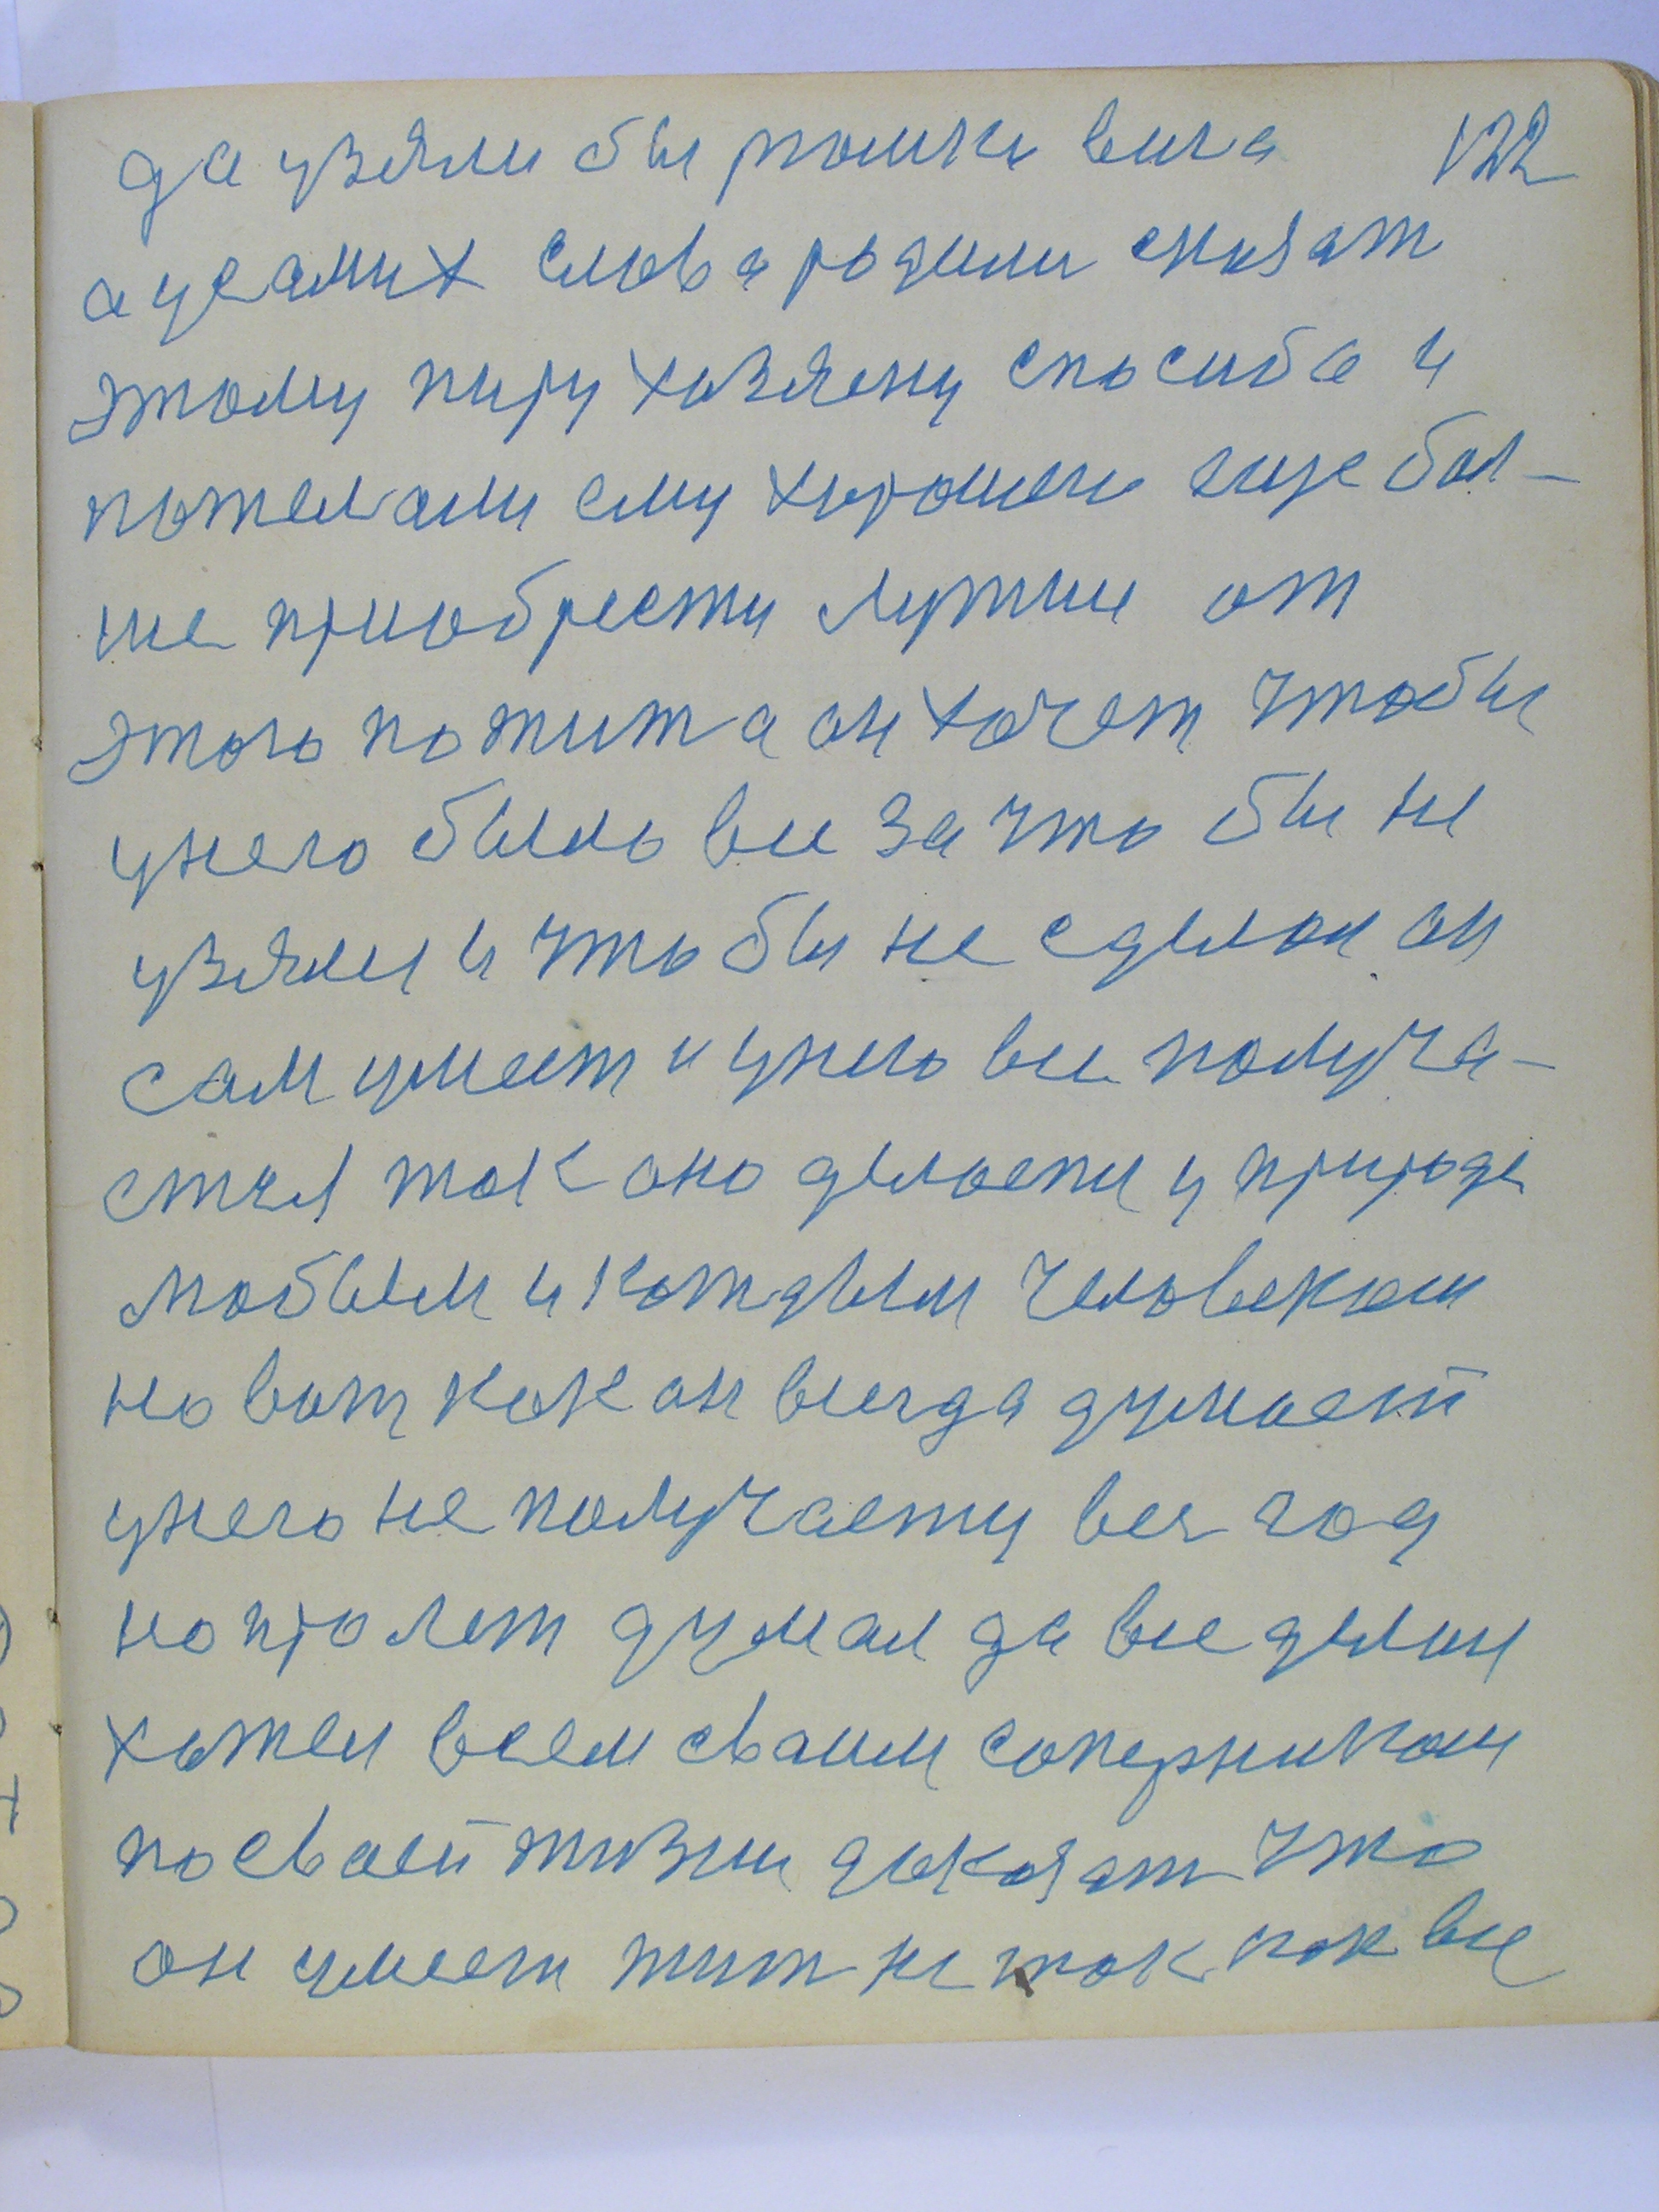 да узяли бы рюмки вина 122
а усамих слова родили сказат
этому пиру хозяену спосиба и
пожелали ему хорошен еще бол-
ше приобрести лутше от
этого пожит а он хочет чтобы
унего было все за что бы не
узяли и что бы не сделал он
сам умеет и унего все получа-
ется так оно делаети у природе
любым и каждым человеком
но вот как он всегда думает
унего не получаети век год
но про лет думал да все делал
хотел всем сваим соперникам
посваей жизни доказат что
он умеет жит не так как все